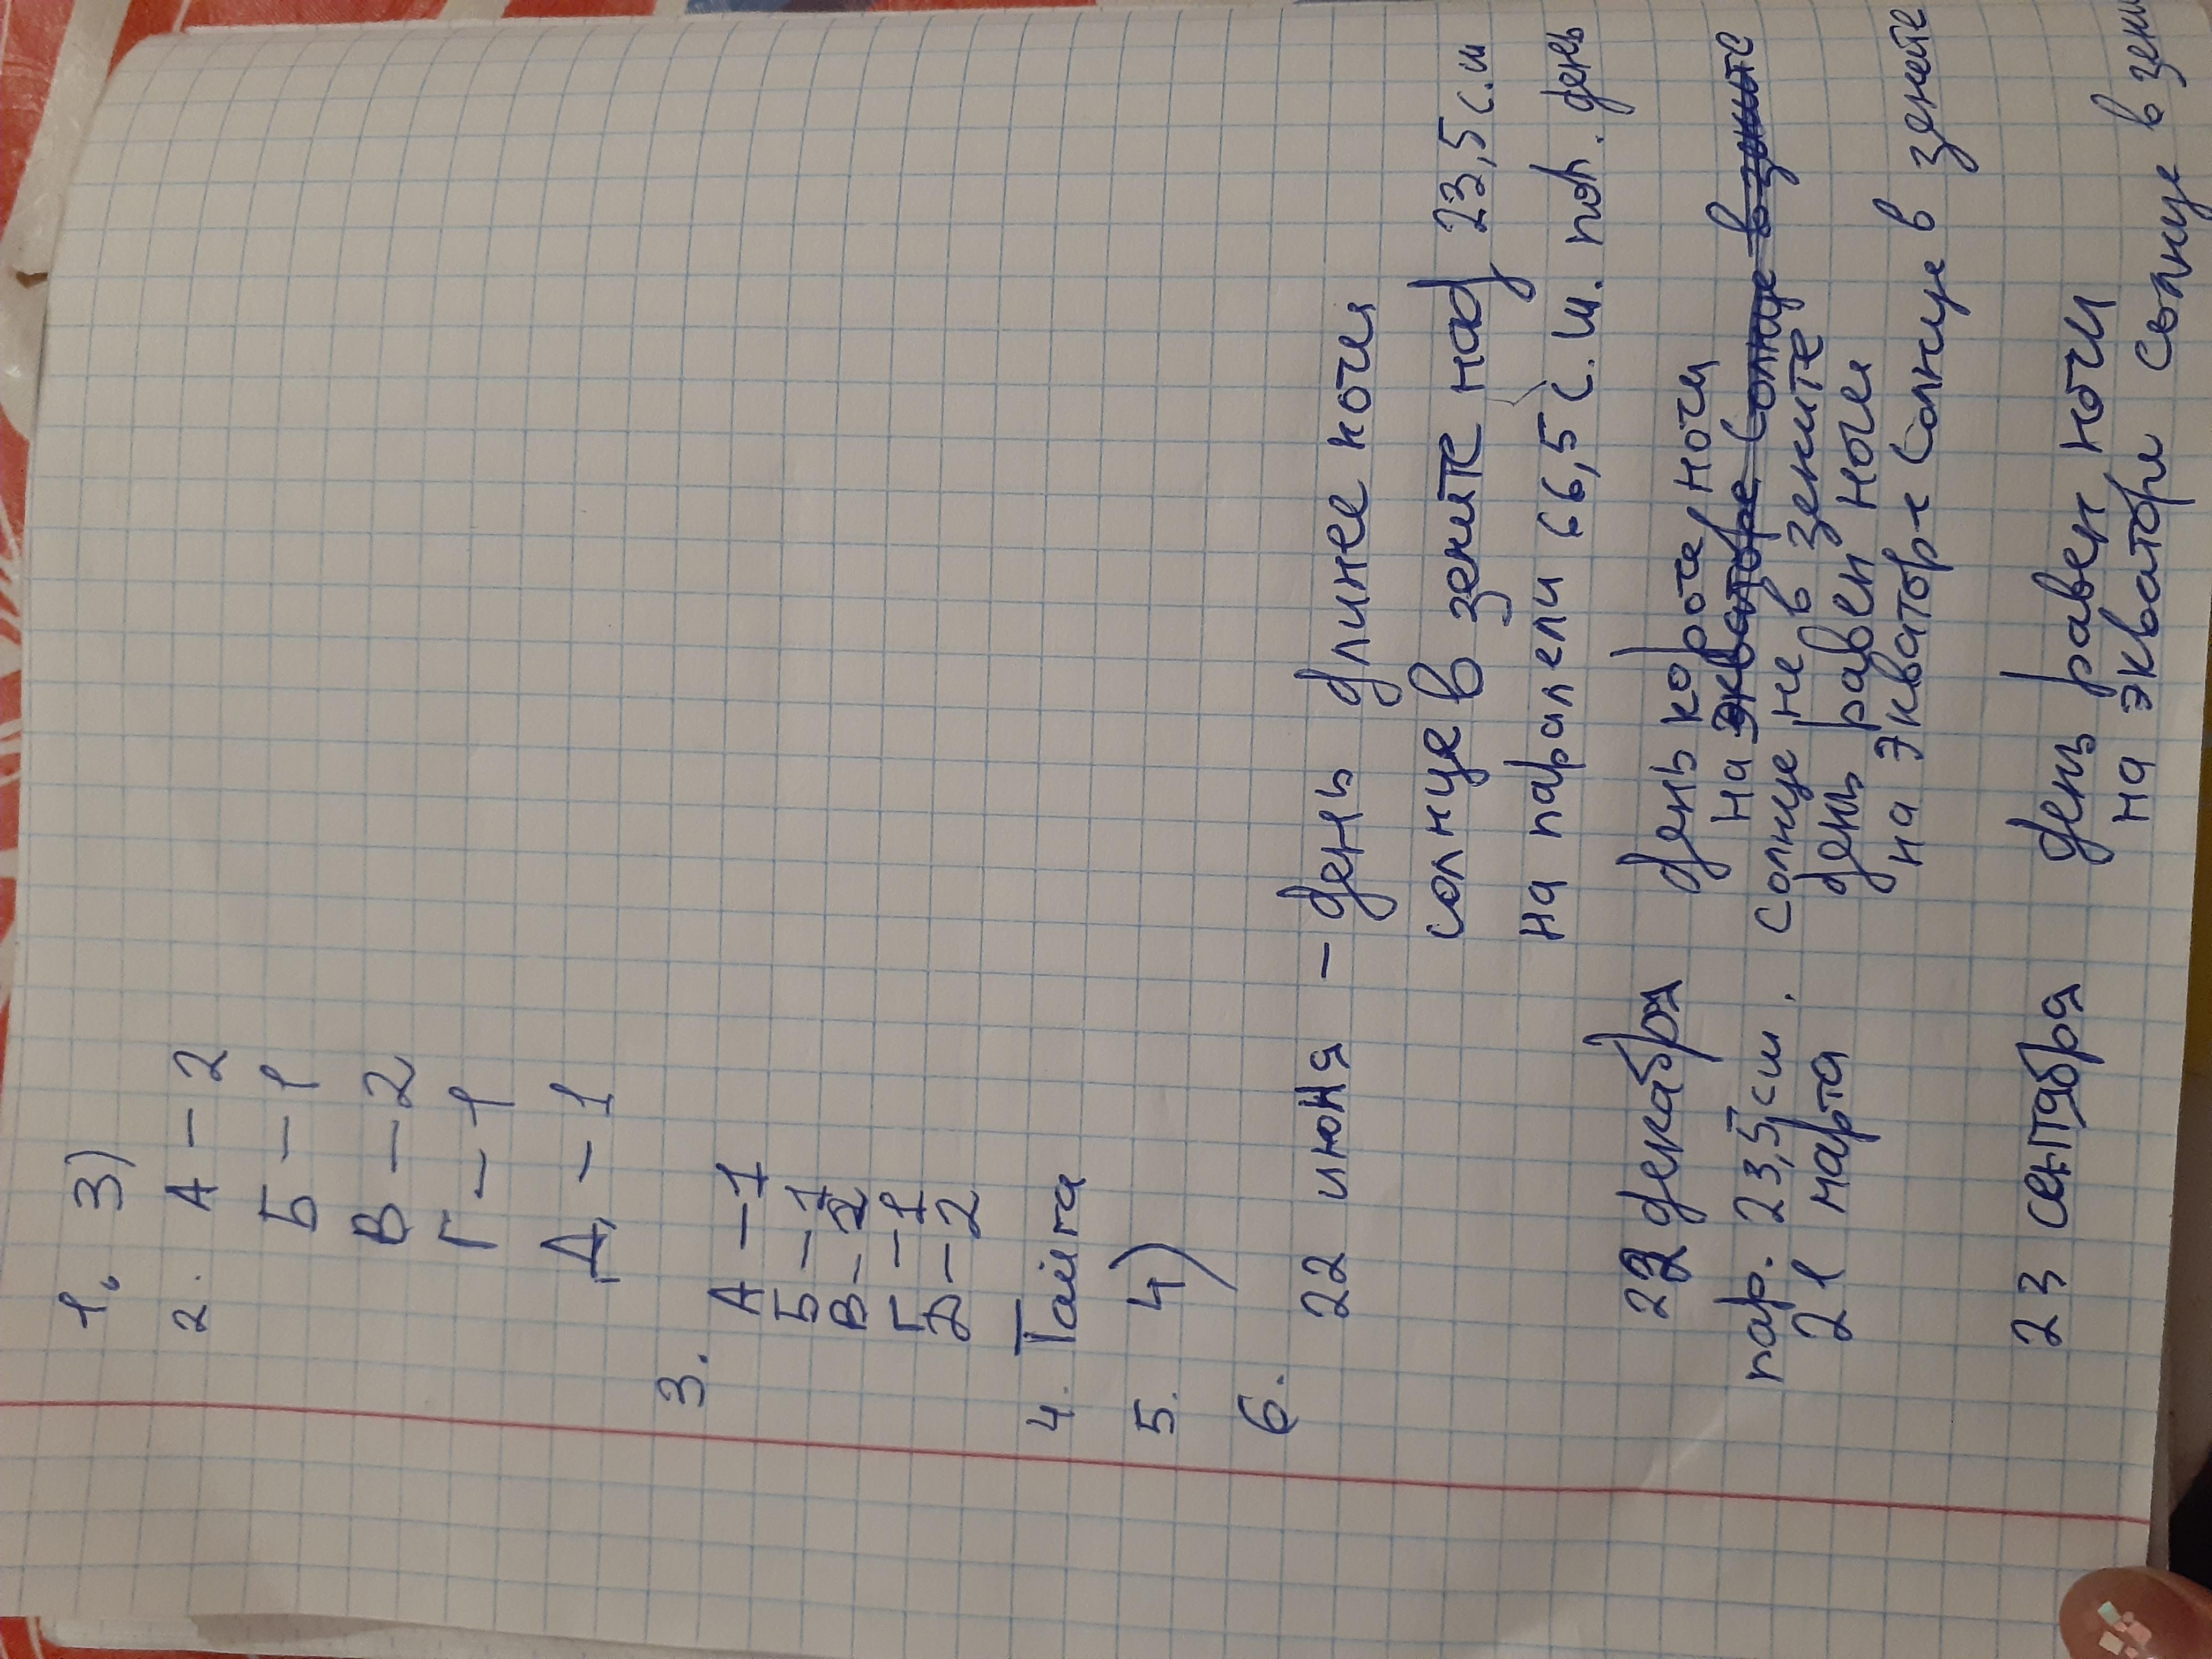 1. 3)
2. А – 2
Б – 1
В – 2
Г – 1
Д – 1
3. А – 1
Б – 1
В – 2
Г – 1
Д – 2
4. Тайга
5. 4)
6.
22 июня – день длинее ночи
солнце в зените над 23,5 с.ш
на паралели 66,5 с.ш. пол. день
22 декабря день короче ночи
на экваторе солнце в зените
пар. 23,5 сш. солнце не в зените
21 марта день равен ночи
на экваторе солнце в зените
23 сентября день равен ночи
на экватори солнце в зени